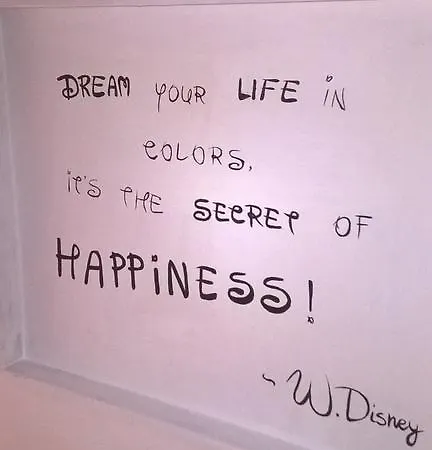 DREAM YOUR LIFE iN
COLORS,
iT'S THE SECRET OF
HAPPiNESS!
~ W.Disney